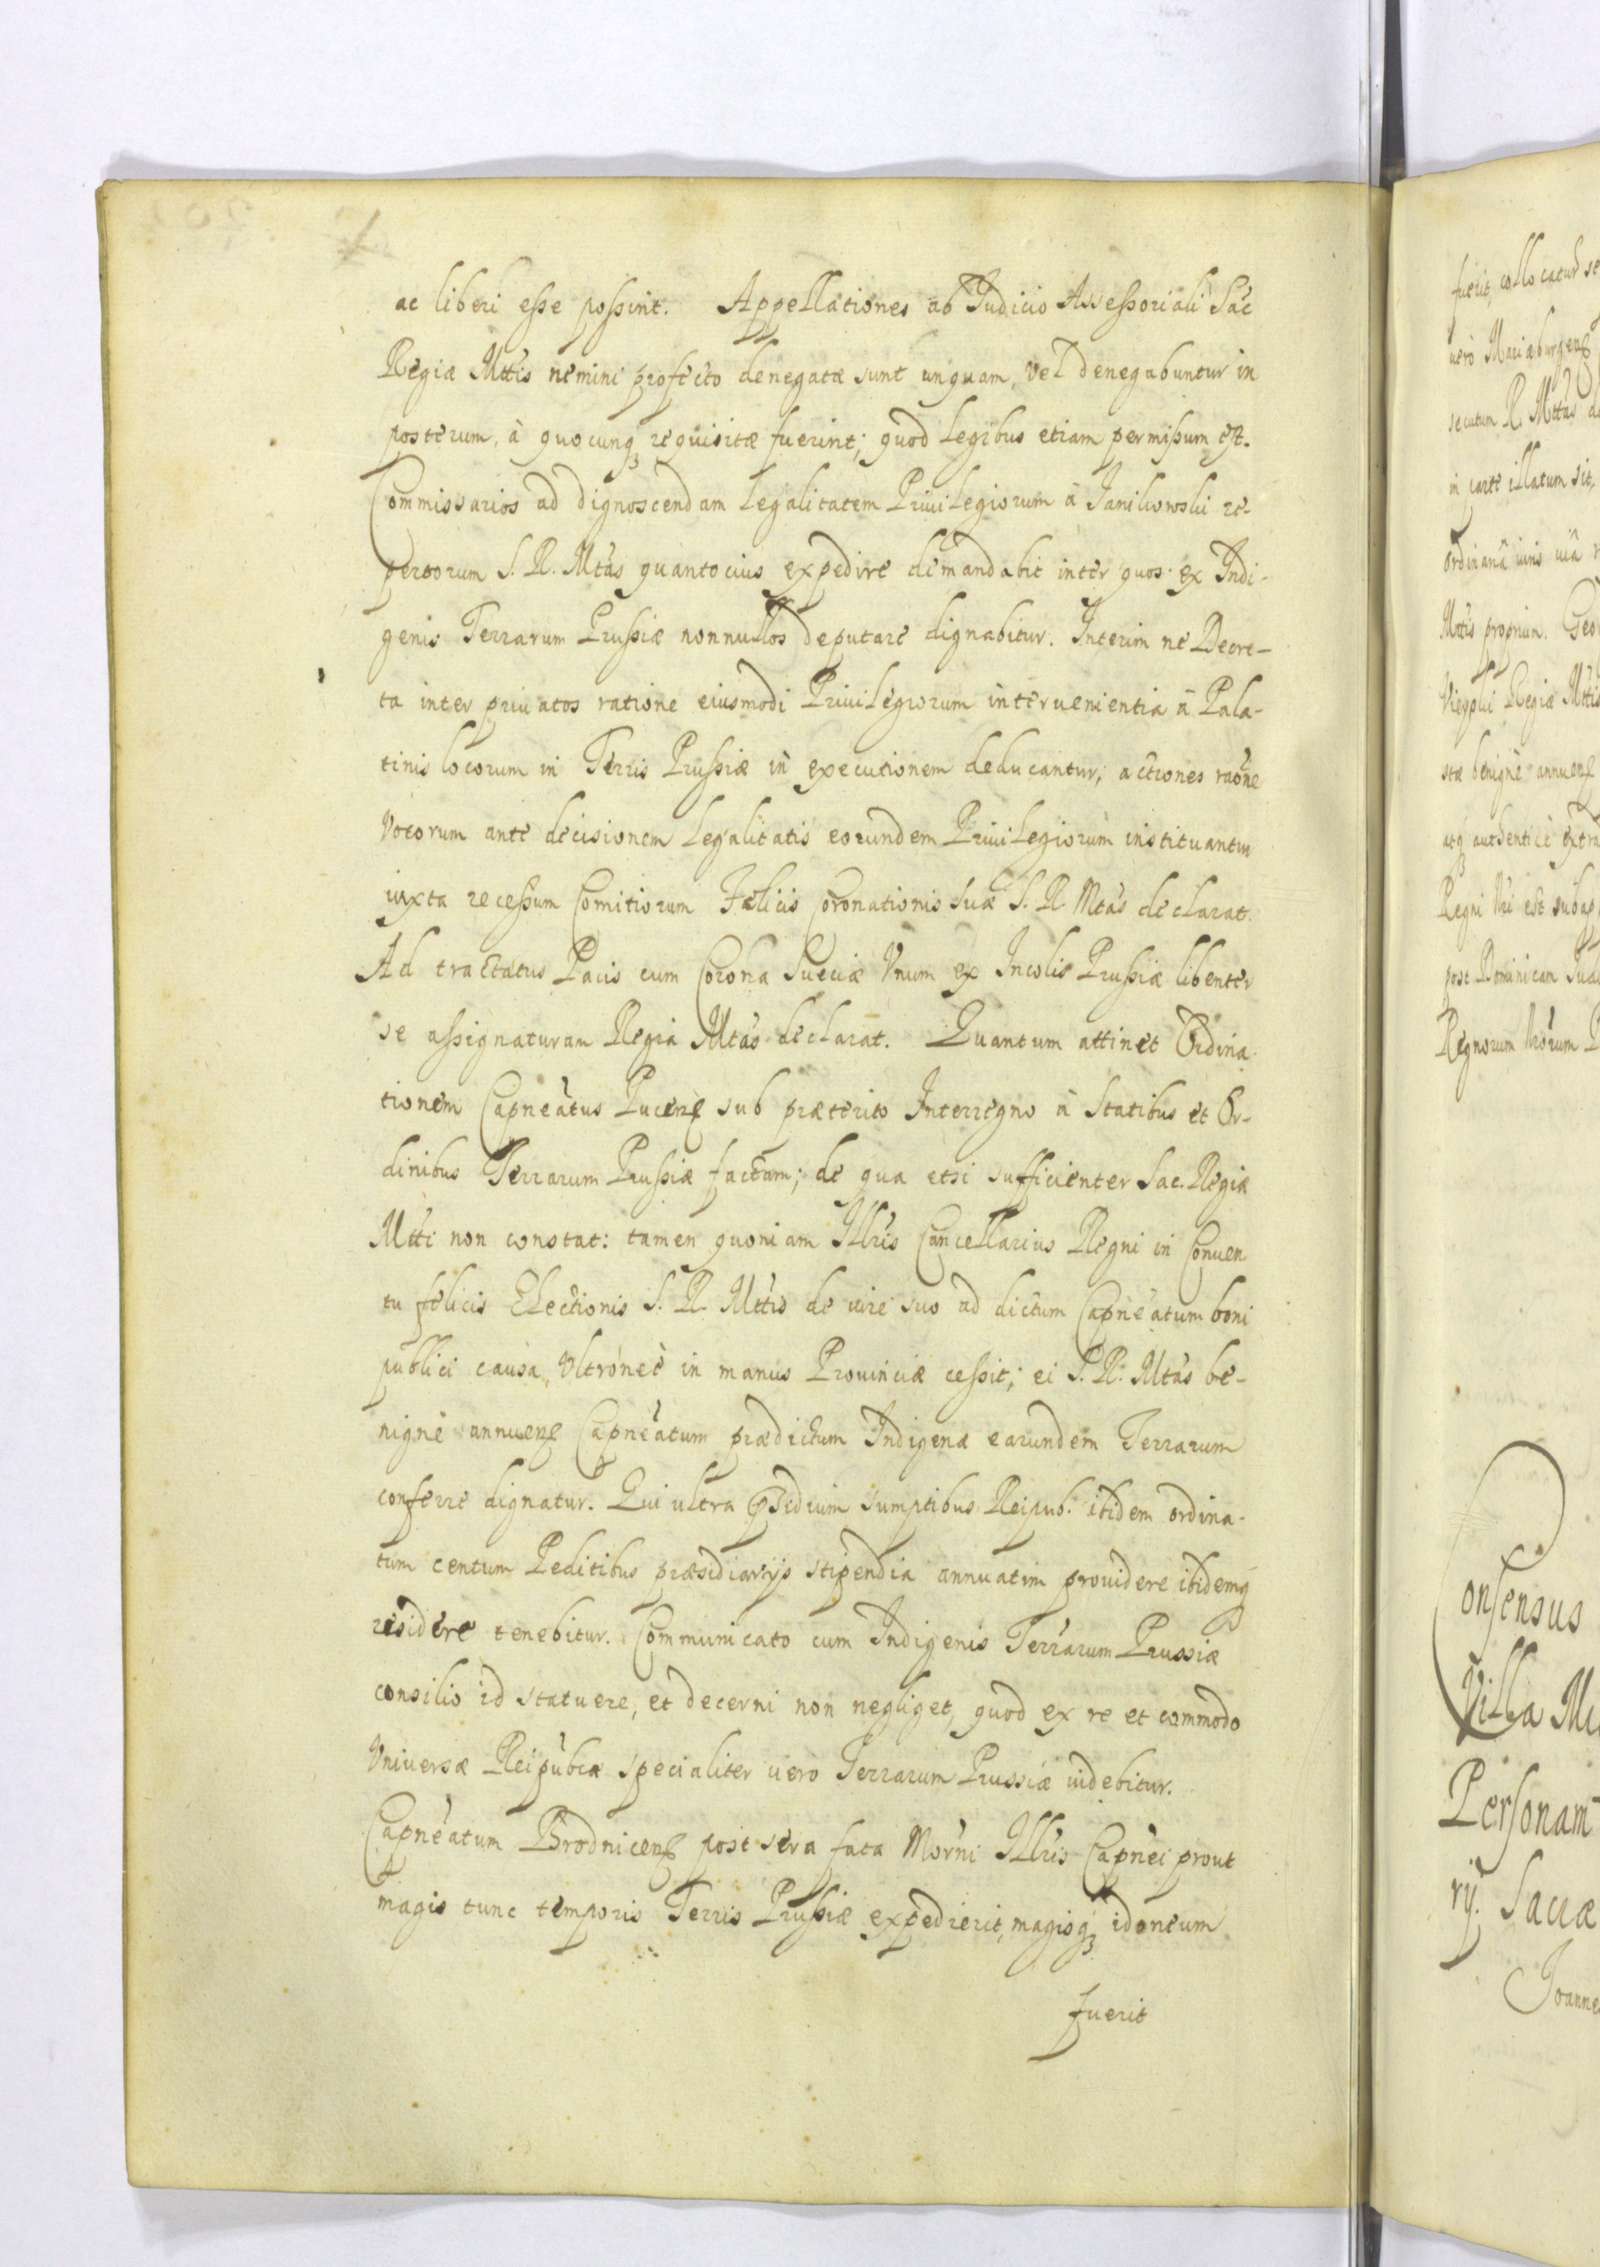 ac liberi esse possint. Appellationes ab Judicio Assessoriali Sac
Regiæ Mttis nemini profecto denegatæ sunt unquam, vel denegabuntur in
posterum, à quocunq requisitæ fuerint; quod legibus etiam permissum est.
Commissarios ad dignoscendam legalitatem Privilegiorum à Janikowski re-
pertorum S. R. Mtas quantocius expedire demandabit inter quos ex Indi-
genis Terrarum Prussiæ nonnullos deputare dignabitur. Interim ne Decre-
ta inter privatos ratione eiusmodi Privilegiorum intervenientia à Pala-
tinis locorum in Terris Prussiæ in executionem deducantur, actiones raōne
Votorum ante decisionem legalitatis eorundem Privilegiorum instituantur
iuxta recessum Comitiorum Fælicis Coronationis suæ S. R. Mtas declarat.
Ad tractatus Pacis cum Corona Sueciæ Unum ex Incolis Prussiæ libenter
se assignaturam Regia Mtas declarat. Quantum attinet Ordina
tionem Capneatus Pucens sub præterito Interregno à Statibus et Or-
dinibus Terrarum Prussiæ factam; de qua etsi sufficienter Sac. Regiæ
Mtti non constat: tamen quoniam Illris Cancellarius Regni in Conuen
tu felicis Electionis S. R. Mttis de iure suo ad dictum Capneatum boni
publici causa, Ultroneè in manus Prouinciæ cessit; ei S. R. Mtas be-
nignè annuens Capneatum prædictum Indigenæ earundem Terrarum
conferre dignatur. Qui ultra Præsidium sumptibus Reipub. itidem ordina-
tum centum Peditibus præsidiarijs stipendia annuatim prouidere ibidemq
residere tenebitur. Communicato cum Indigenis Terrarum Prussiæ
consilio id statuere, et decerni non negliget, quod ex re et commodo
Universæ Reipubcæ specialiter uerò Terrarum Prussiæ uidebitur.
Capneatum Brodnicens post sera fata Moďrni Illris Capnei prout
magis tunc temporis Terris Prussiæ expedierit, magisq idoneum
fuerit
fuerit, collocatur
uerò
secutum R. Mttas
in parte illatum sit,
iuris uiâ
Mttis proprium.
Regiæ Mttis
stæ benignè annuens
atq authenticè
Regni Nri est
post Dominicam
Regnorum Nrorum
onsensus
Villa
Personam
rij. Sacræ
Joanne